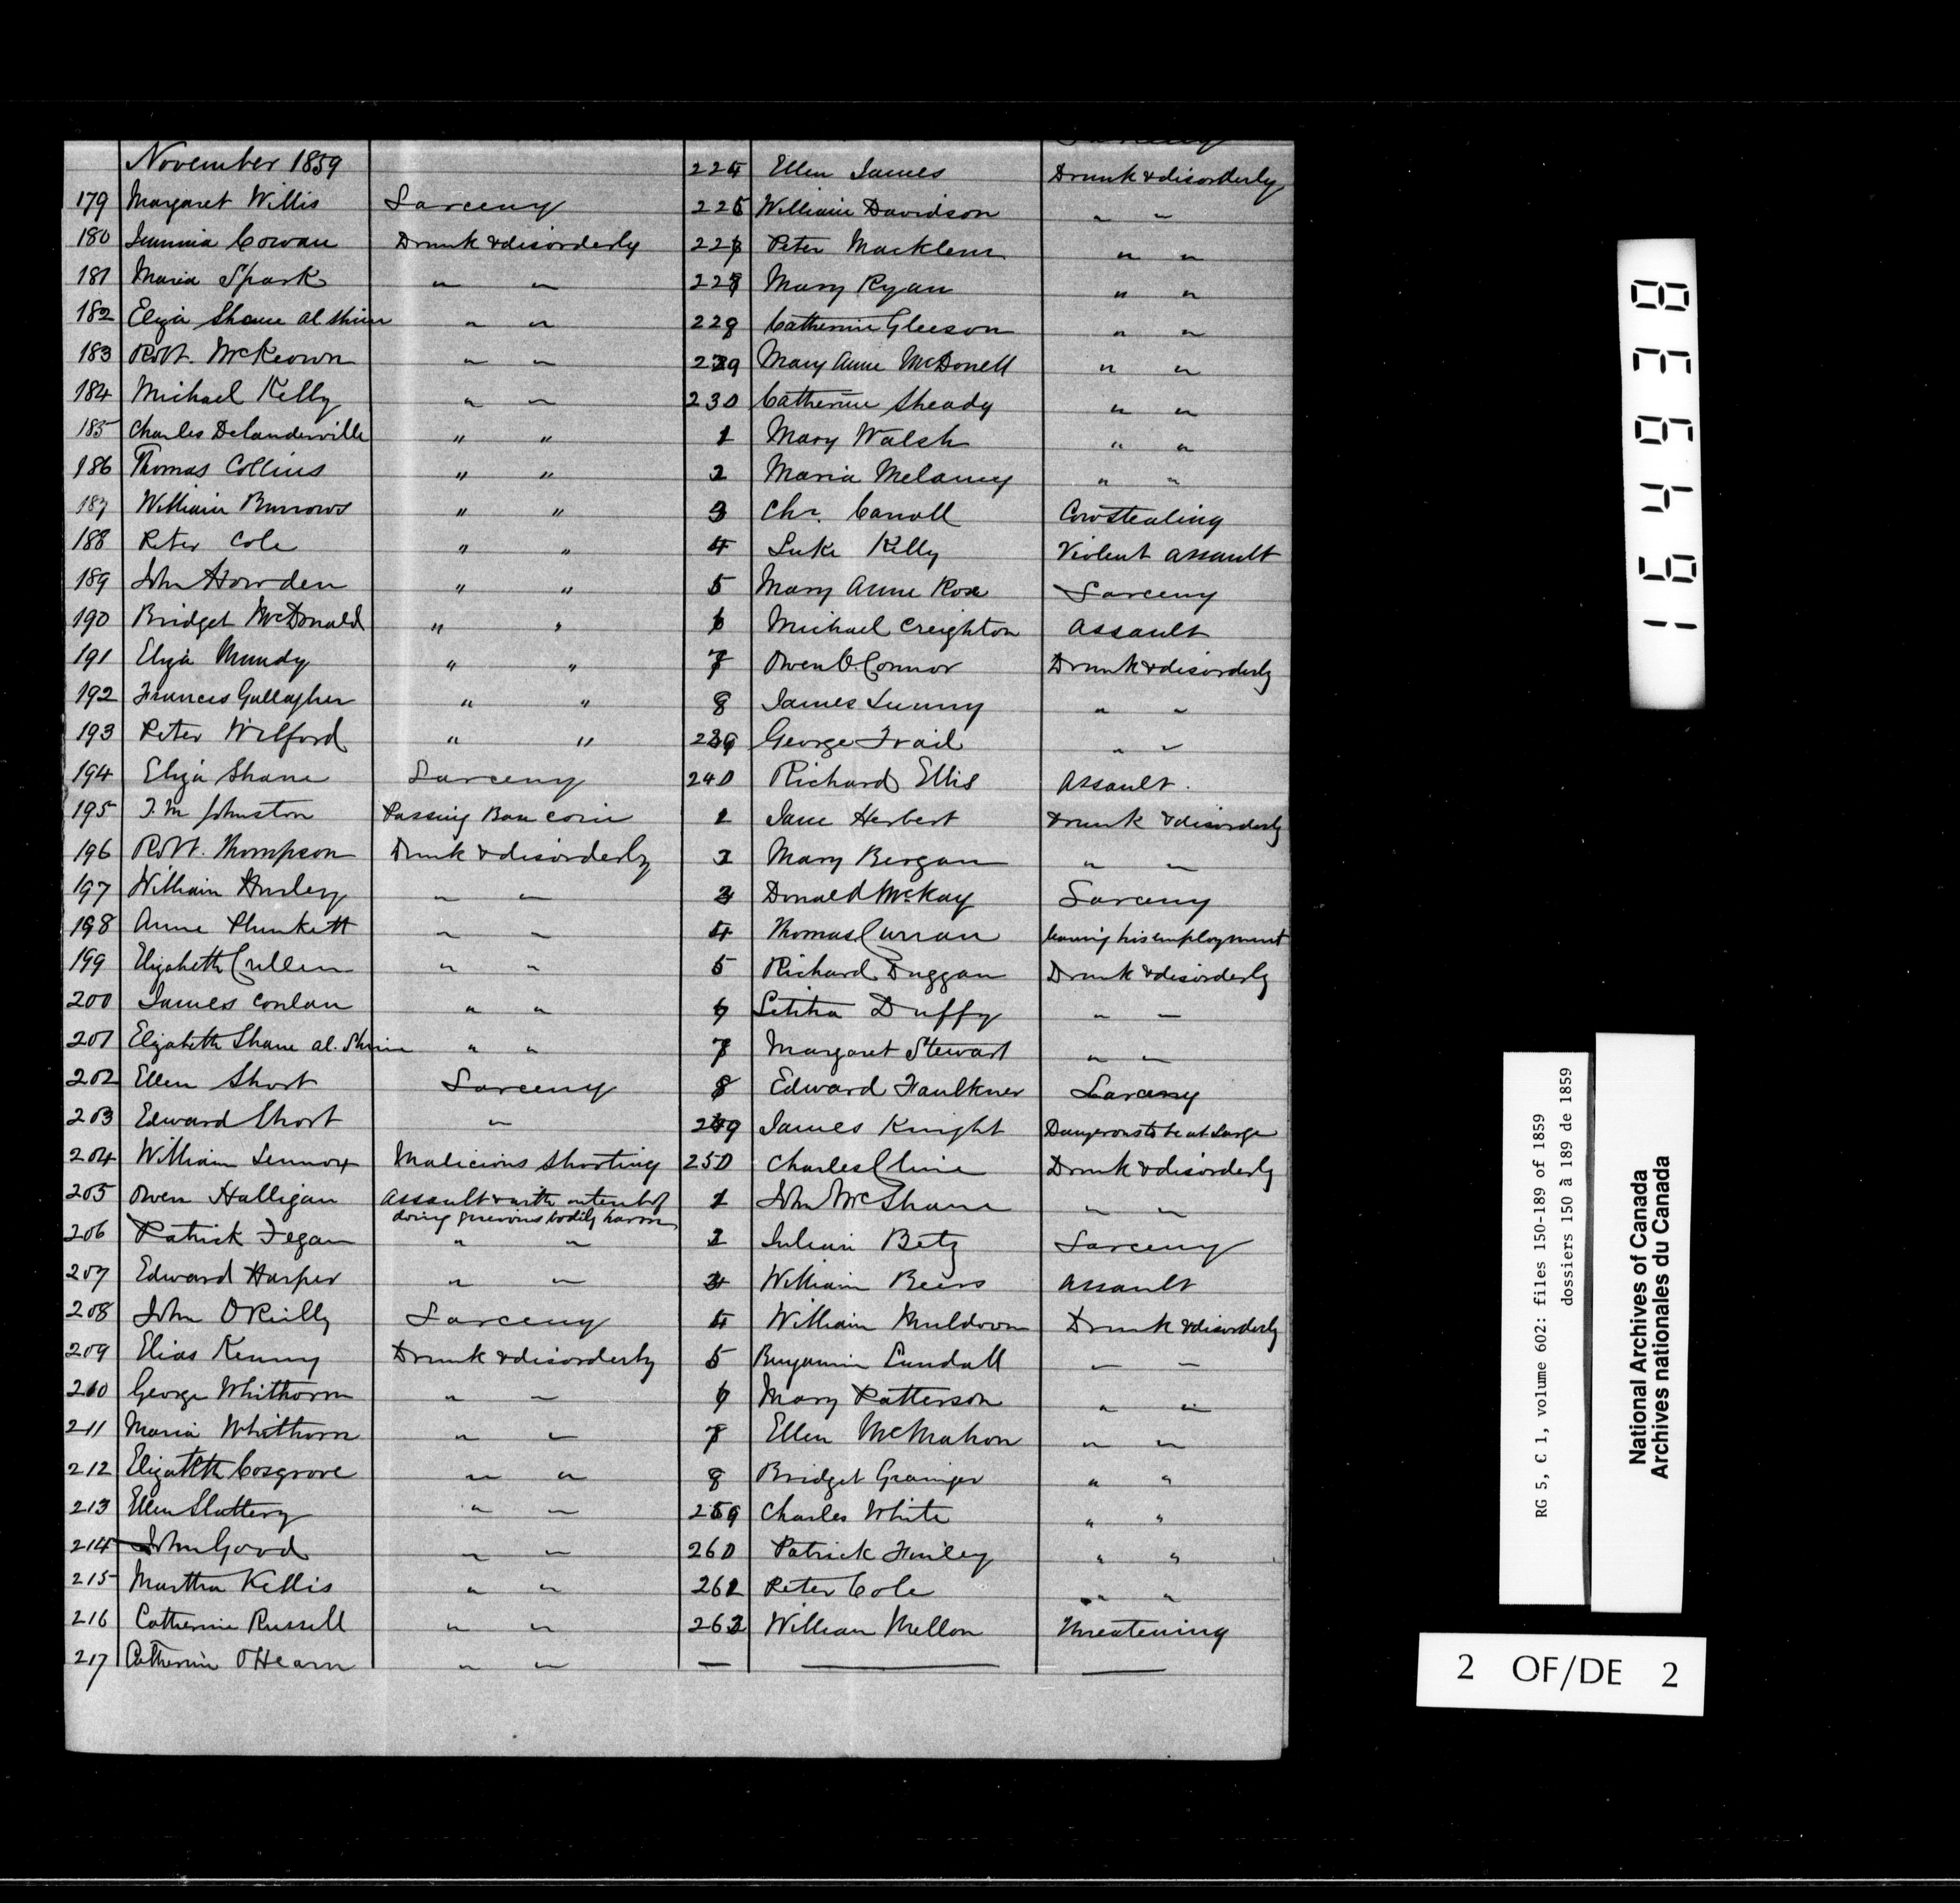 November 1859
179 Margaret Willis Larceny
180 Cowan Drunk & disorderly
181 Maria Spark " "
182 Eliza Shane al Shine " "
183 Robt. McKeown " "
184 Michael Kelly " "
185 Charles Delanderville " "
186 Thomas Collins " "
187 William Burrows " "
188 Peter Cole " "
189 John Howden " "
190 Bridget McDonald " "
191 Eliza Mundy " "
192 Frances Gallagher " "
193 Peter Wilford " "
194 Eliza Shane Larceny
195 J. M Johnston Passing Base coin
196 Robt. Thompson Drunk & disorderly
197 William Hurley " "
198 Anne Plunkett " "
199 Elizabeth Cullen " "
200 James Conlan " "
201 Elizabeth Shane al. Shine " "
202 Ellen Short Larceny
203 Edward Short "
204 William Lennox Malicious Shooting
205 Owen Halligan Assault & with intent of
doing grievous bodily harm
206 Patrick Fegan " "
207 Edward Harper " "
208 John OReilly Larceny
209 Elias Kenny Drunk & disorderly
210 George Whithorn " "
211 Maria Whithorn " "
212 Elizabeth Cosgrove " "
213 Ellen Slattery " "
214 John Good " "
215 Martha Kellis " "
216 Catherine Russell " "
217 Catherine OHearn " "
Larceny
224 Ellen James Drunk & disorderly
225 William Davidson " "
226 Peter Macklem " "
227 Mary Ryan " "
228 Catherine Gleeson " "
229 Mary Anne McDonell " "
230 Catherine Sheady " "
1 Mary Walsh " "
2 Maria Melaney " "
3 Chr. Carroll Cow stealing
4 Luke Kelly Violent assault
5 Mary Anne Rose Larceny
6 Michael Creighton Assault
7 Owen O'Connor Drunk & disorderly
8 James Lunny " "
239 George Trail " "
240 Richard Ellis Assault.
1 Jane Herbert Drunk & disorderly
2 Mary Bergan " "
3 Donald McKay Larceny
4 Thomas Curran leaving his employment
5 Richard Duggan Drunk & disorderly
6 Letitia Duffy " "
7 Margaret Stewart " "
8 Edward Faulkner Larceny
249 James Knight Dangerous to be at large
250 Charles Cline Drunk & disorderly
1 John McShane " "
2 Betz Larceny
3 William Beers Assault
4 William Muldoon Drunk & disorderly
5 Benjamin Lundall " "
6 Mary Patterson " "
7 Ellen McMahon " "
8 Bridget Grainger " "
259 Charles White " "
260 Patrick Finley " "
261 Peter Cole " "
262 William Mellon Threatening
164938
RG 5, C 1, volume 602: files 150-189 of 1859
dossiers 150 à 189 de 1859
National Archives of Canada
Archives nationales du Canada
2 OF/DE 2